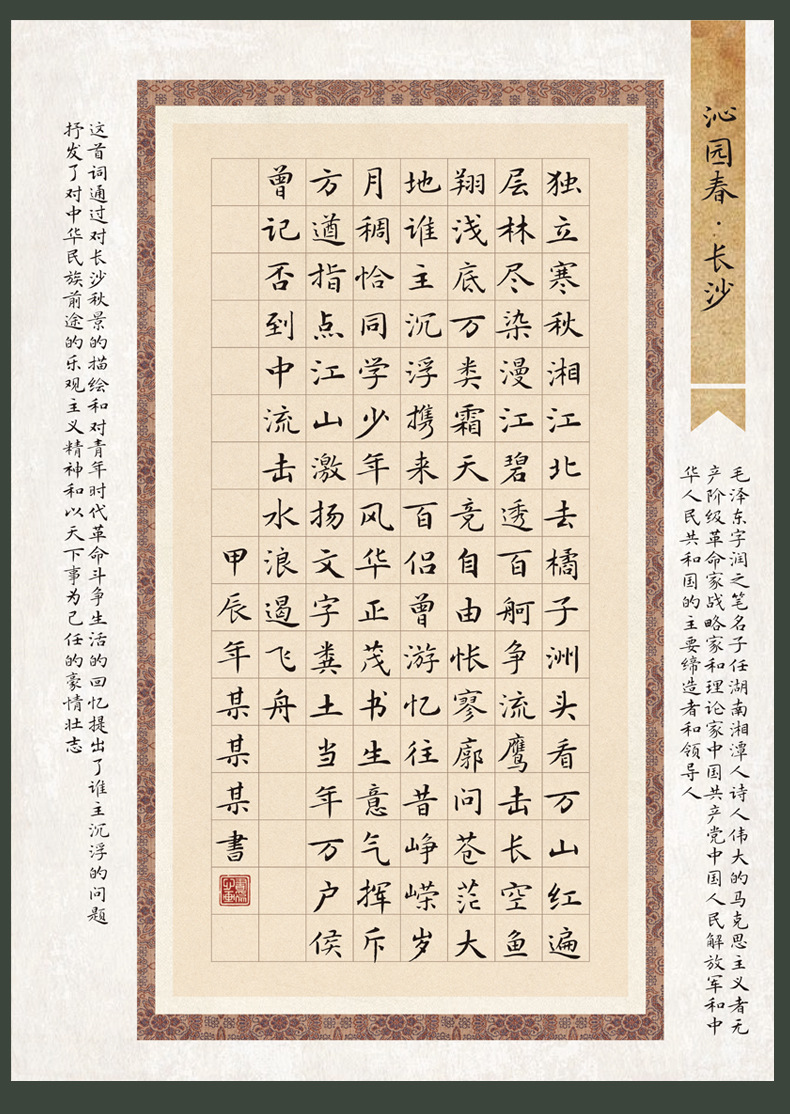 沁园春·长沙
毛泽东字润之笔名子任湖南湘潭人诗人伟大的马克思主义者无
产阶级革命家战略家和理论家中国共产党中国人民解放军和中
华人民共和国的主要缔造者和领导人
独立寒秋湘江北去橘子洲头看万山红遍
层林尽染漫江碧透百舸争流鹰击长空鱼
翔浅底万类霜天竞自由怅寥廓问苍茫大
地谁主沉浮携来百侣曾游忆往昔峥嵘岁
月稠恰同学少年风华正茂书生意气挥斥
方遒指点江山激扬文字粪土当年万户侯
曾记否到中流击水浪遏飞舟
甲辰年某某某書
这首词通过对长沙秋景的描绘和对青年时代革命斗争生活的回忆提出了谁主沉浮的问题
抒发了对中华民族前途的乐观主义精神和以天下事为己任的豪情壮志